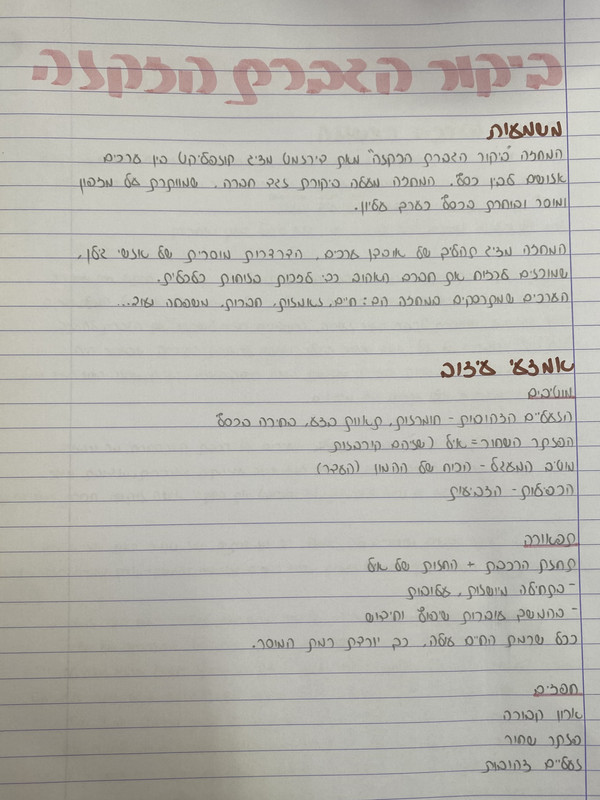 ביקור הגברת הזקנה
משמעות
המחזה "ביקור הגברת הזקנה" מאת דירנמט מציג קונפליקט בין ערכים
אנושים לבין כסף. המחזה מעלה ביקורת נגד חברה, שמוותרת על מצפון
ומוסר ובוחרת בכסף כערך עליון.
המחזה מציג תהליך של אובדן ערכים, הדרדרות מוסרית של אנשי גלן,
שמוכנים לרצוח את חברם האהוב כדי לזכות בנוחות כלכלית.
הערכים שמתרסקים במחזה הם: חיים, נאמנות, חברות, משפחה ועוד...
אמצעי עיצוב
מוטיבים
הנעליים הצהובות - חומרנות, תאוות בצע, בחירה בכסף
הפנתר השחור = איל (שניהם קורבנות
מוטיב המעגל - הכוח של ההמון (העדר)
הכפילות - הצביעות
תפאורה
תחנת הרכבת + החנות של איל
- בתחילה מיושנות, עלובות
- בהמשך עוברות שיפוץ וחידוש
ככל שרמת החיים עולה, כך יורדת רמת המוסר.
חפצים
ארון קבורה
פנתר שחור
נעליים צהובות